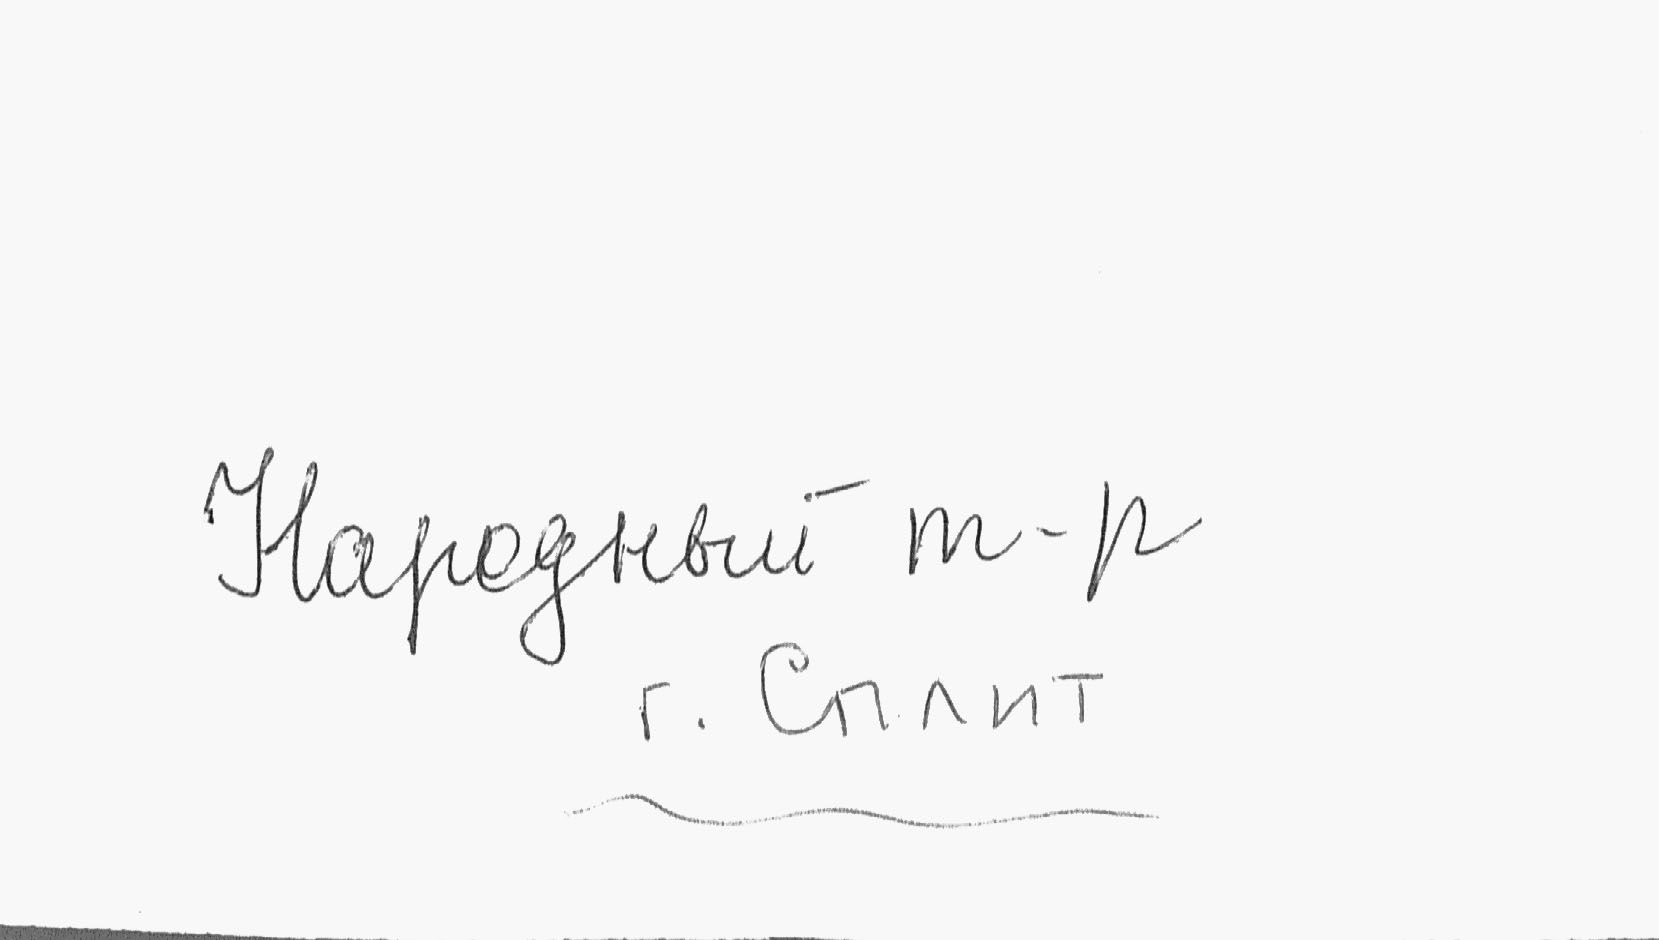 Народный т-р
г. Сплит